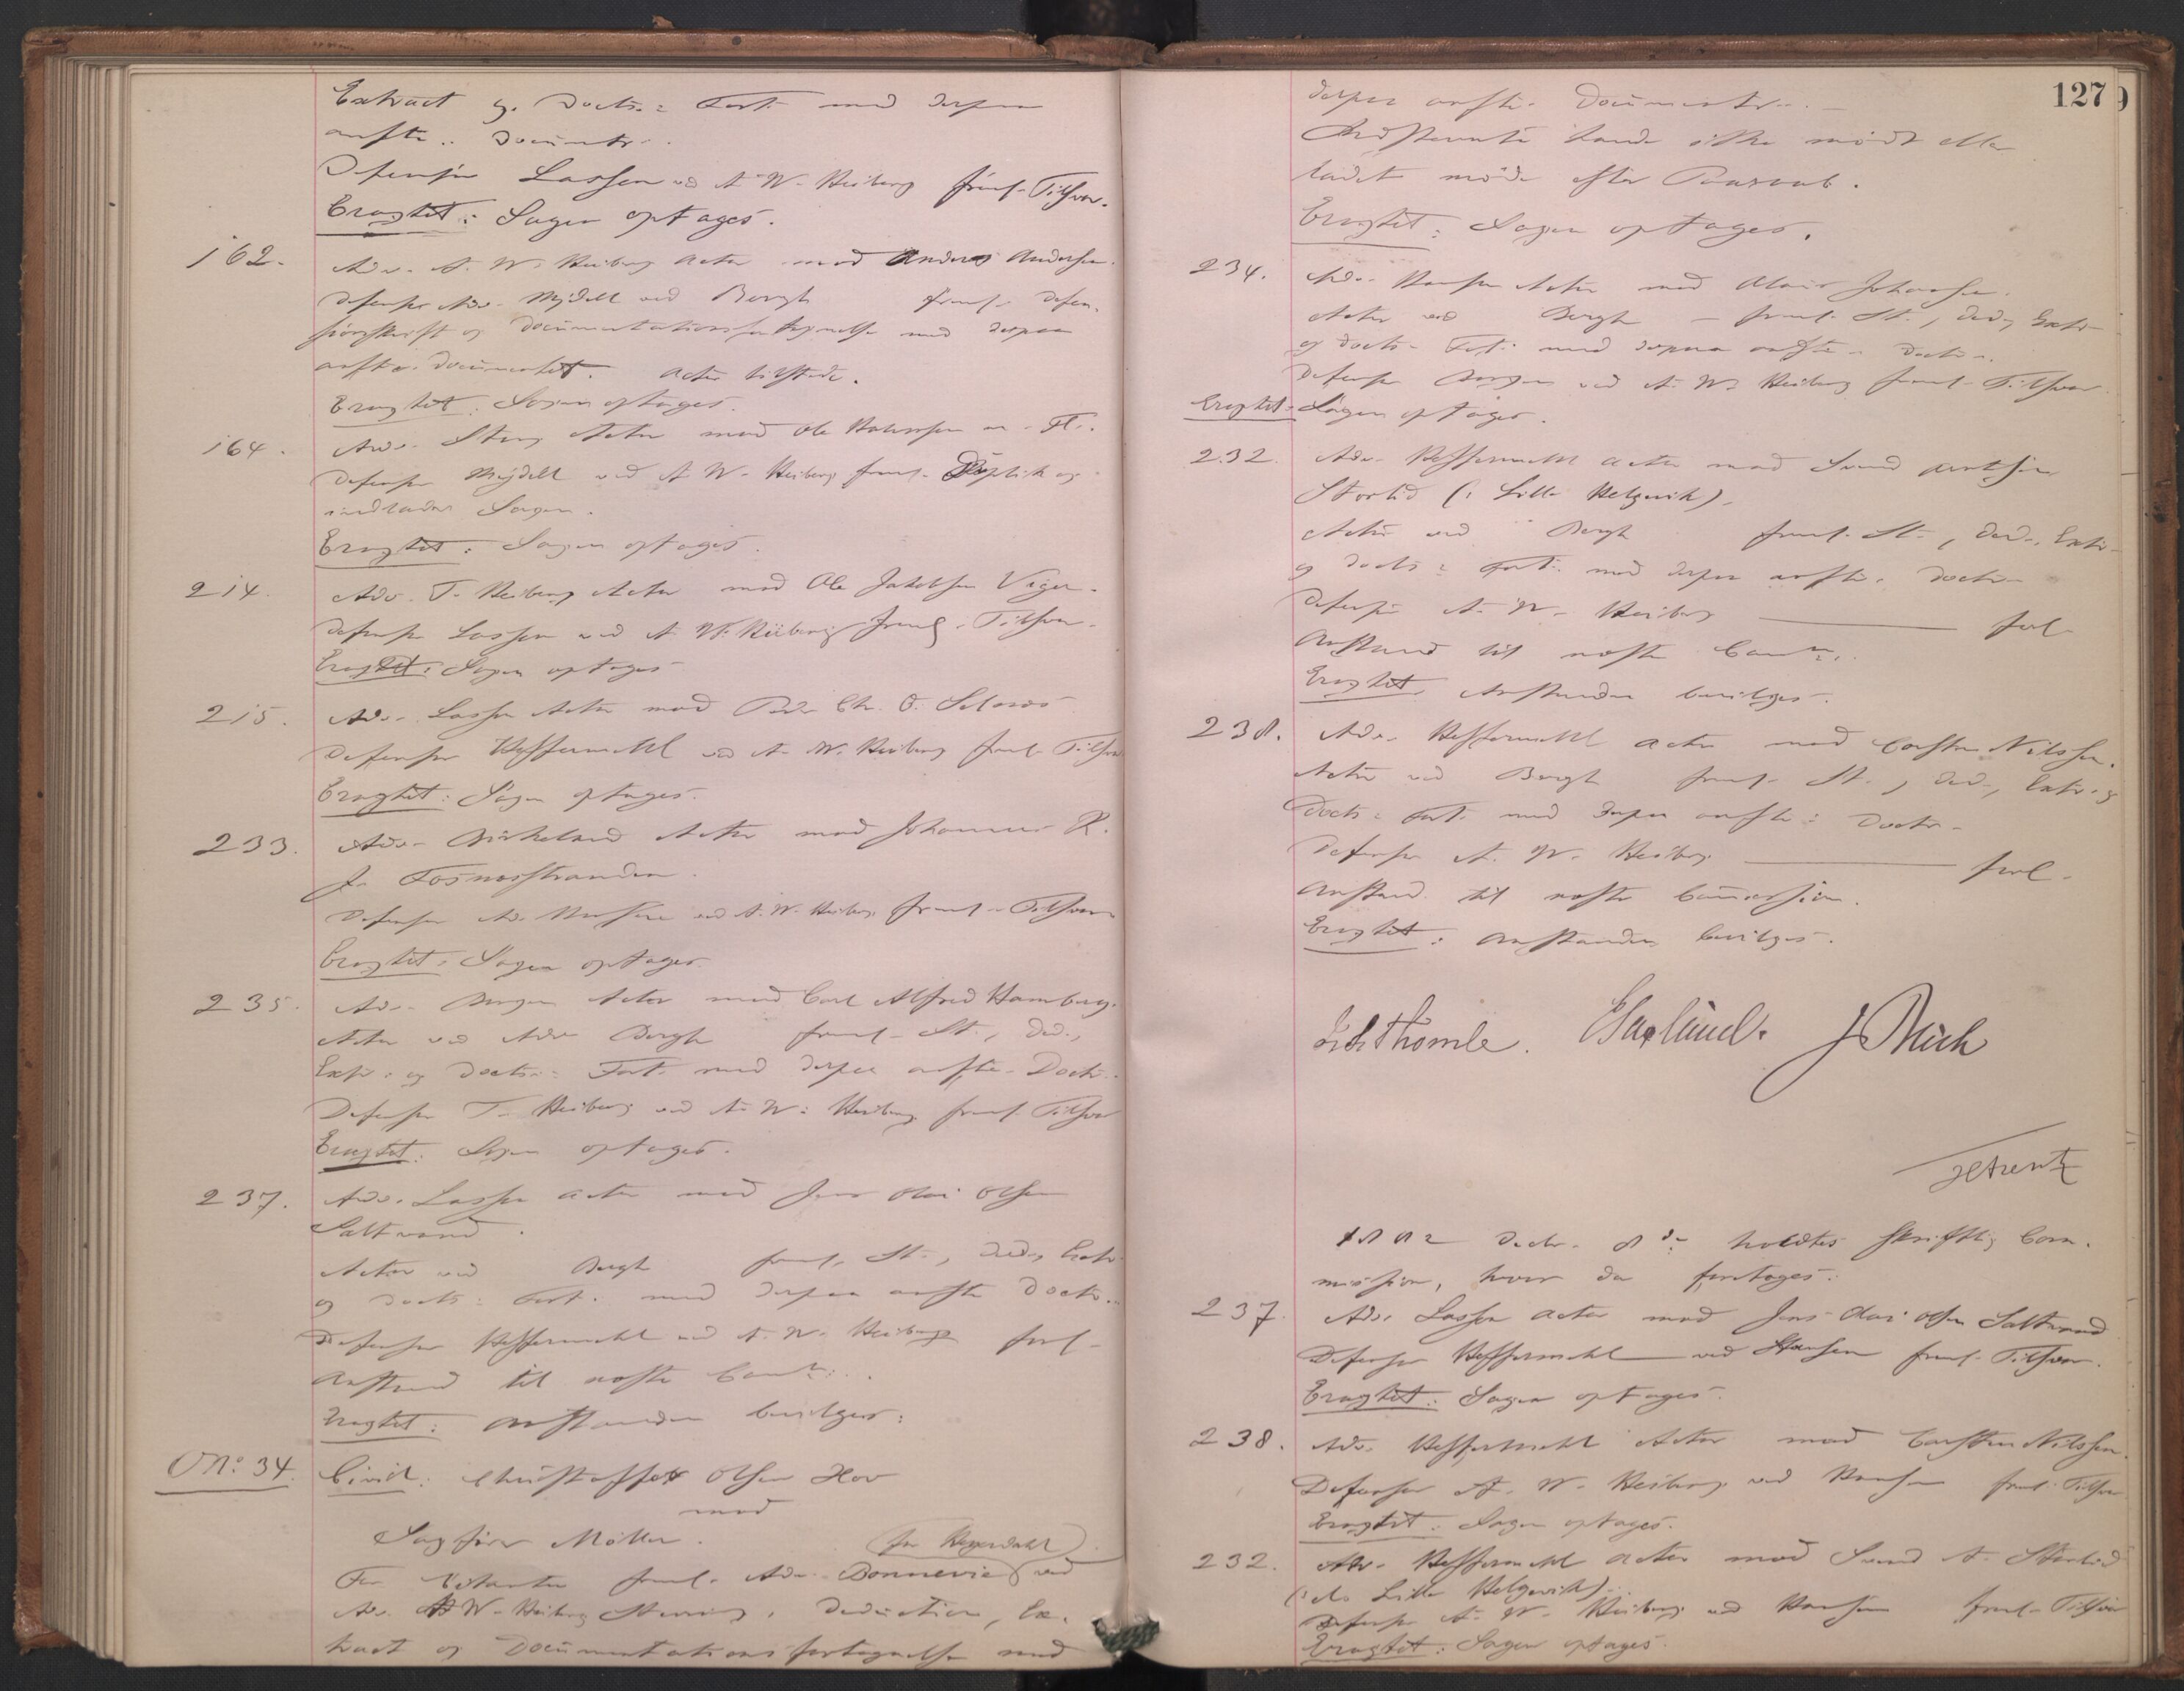 Extract og Docts.: Fort. med derpaa
anførte Documenter.
Defensor Lassen ved A. W. Heiberg freml. Tilsvar.
Eragtet: Sagen optages.
162. Adv. A. W. Heiberg Actor mod Anders Andersen.
Defensor Adv. Mejdell ved Bergh freml. Defen-
sorskrift og Documentationsfortegnelse med derpaa
anførte Documenter. Actor tilstede.
Eragtet: Sagen optages.
164. Adv. Stang Actor mod Ole Halvorsen m. Fl.
Defensor Mejdell ved A. W. Heiberg freml. Duplik og
indlader Sagen.
Eragtet: Sagen optages.
214. Adv. T. Heiberg Actor mod Ole Jakobsen
Defensor Lassen ved A. W. Heiberg freml. Tilsvar.
Eragtet: Sagen optages
215. Adv. Lassen Actor mod Chr. O.
Defensor Heffermehl ved A. W. Heiberg freml. Tilsvar
Eragtet: Sagen optages.
233. Adv. Birkeland Actor mod Johannes R.
J.
Defensor Adv. ved A. W. Heiberg freml. Tilsvar
Eragtet: Sagen optages.
235. Adv. Actor mod Carl Alfred Hamberg.
Actor ved Adv. Bergh freml. St., Ded.,
Extr. og Docts.: Fort. med derpaa anførte Doctr.
Defensor T. Heiberg ved A. W. Heiberg freml. Tilsvar
Eragtet: Sagen optages.
237. Adv. Lassen Actor mod Jens Olai Olsen
Saltrand.
Actor ved Bergh freml. St., Ded., Extr.
og Docts.: Fort. med derpaa anførte Doctr.
Defensor Heffermehl ved A. W. Heiberg forl.
Anstand til næste Comm.
Eragtet: Anstanden bevilges.
No. 34. Civil: Christoffer Olsen Hov
mod
Sagfører Møller.
(for Heyerdahl)
For Citanten freml. Adv. Bonnevie ved
Adv. A. W. Heiberg Stevning, Deduction, Ex-
tract og Documentationsfortegnelse med
127
derpaa anførte Documenter.
Indstevnte havde ikke mødt eller
ladet møde efter Paaraab.
Eragtet: Sagen optages.
234. Adv. Hansen Actor mod Johansen.
Actor ved Bergh freml. St., Ded., Extr.
og Docts. Fort. med derpaa anførte Doctr.
Defensor ved A. W. Heiberg freml. Tilsvar
Eragtet: Sagen optages.
232. Adv. Heffermehl Actor mod Svend
Storlid (: Lille Helgevik).
Actor ved Bergh freml. St., Ded., Extr.
og Docts.: Fort. med derpaa anførte Doctr.
Defensor A. W. Heiberg forl.
Anstand til næste Comm.
Eragtet: Anstanden bevilges.
238. Adv. Heffermehl Actor mod Carsten Nilssen.
Actor ved Bergh freml. St., Ded., Extr. og
Docts.: Fort. med derpaa anførte: Doctr.
Defensor A. W. Heiberg forl.
Anstand til næste Commission.
Eragtet: Anstanden bevilges.
Thomle.
1882 Decbr. 8de holdtes skriftlig Com-
mission, hvor da foretages:
237. Adv. Lassen Actor mod Jens Olai Olsen Saltrand
Defensor Heffermehl ved Hansen freml. Tilsvar.
Eragtet: Sagen optages.
238. Adv. Heffermehl Actor mod Carsten Nilssen.
Defensor A. W. Heiberg ved Hansen freml. Tilsvar
Eragtet: Sagen optages.
232. Adv. Heffermehl Actor mod Svend A. Storlid
(: Lille Helgevik).
Defensor A. W. Heiberg ved Hansen freml. Tilsvar
Eragtet: Sagen optages.